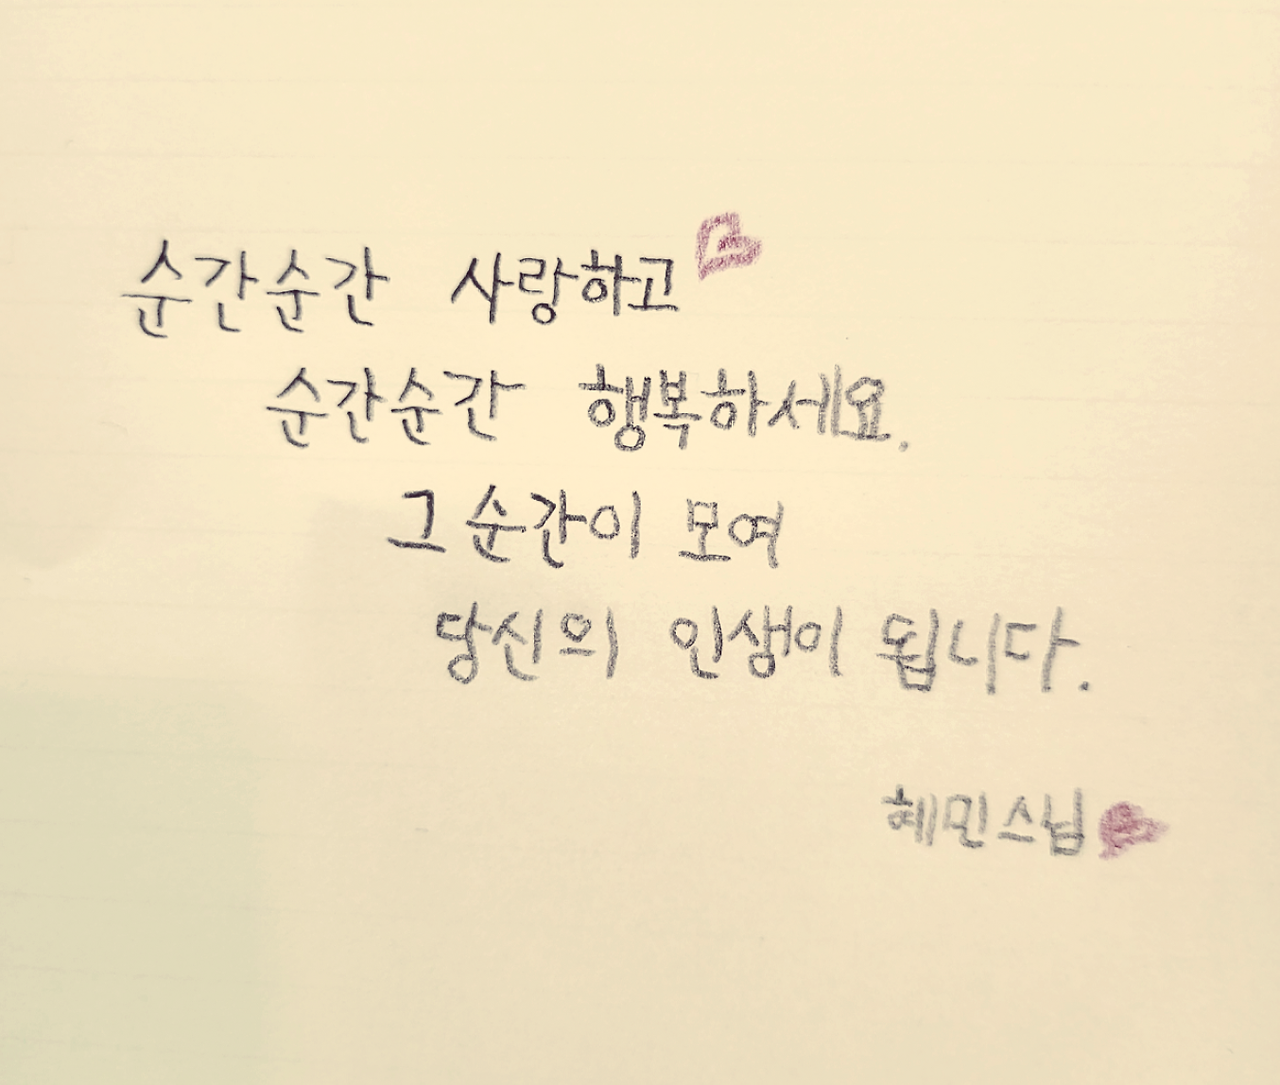 순간순간 사랑하고
순간순간 행복하세요.
그 순간이 모여
당신의 인생이 됩니다.
혜민스님